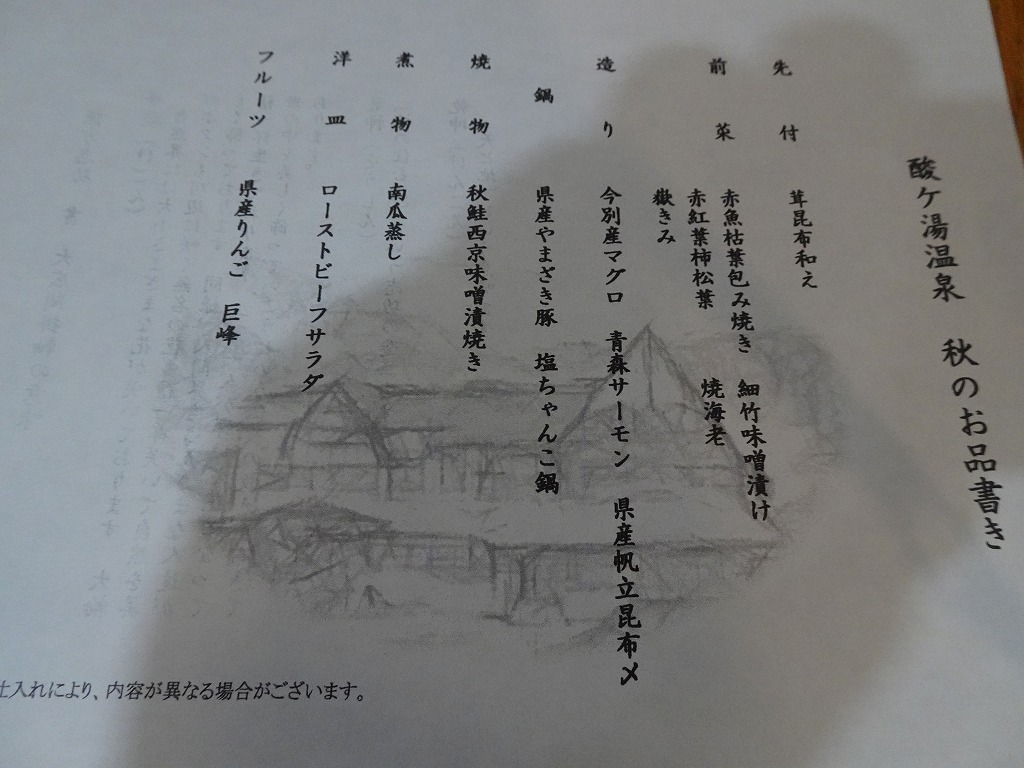 酸ケ湯温泉　秋のお品書き
先付　茸昆布和え
前菜　赤魚枯葉包み焼き　細竹味噌漬け
赤紅葉柿松葉　焼海老
嶽きみ
造り　今別産マグロ　青森サーモン　県産帆立昆布〆
鍋　県産やまざき豚　塩ちゃんこ鍋
焼物　秋鮭西京味噌漬焼き
煮物　南瓜蒸し
洋皿　ローストビーフサラダ
フルーツ　県産りんご　巨峰
仕入れにより、内容が異なる場合がございます。